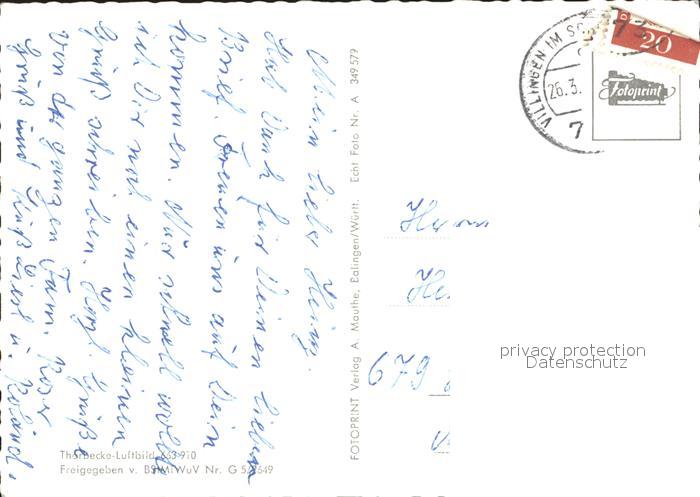 Mein lieber Heinz.
Hab Dank für Deinen lieben
Brief. Freuen uns auf Dein
kommen. Nur schnell wollte
ich Dir noch einen kleinen
Gruß schreiben. Herzl. Grüße
von der ganzen Fam.
Gruß und u. Roland.
Thorbecke-Luftbild 663 910
Freigegeben v. Nr. G
FOTOPRINT Verlag A. Mauthe, Ealingen/Württ. Echt Foto Nr. A 349 579
VILLINGEN IM
26.3.
7
73
20
Fotoprint
Herrn
679
privacy protection
Datenschutz